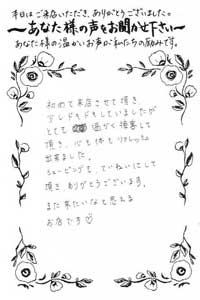 本日はご来店いただき、ありがとうございました。
〜あなた様の声をお聞かせ下さい〜
あなた様の温かいお声が私たちの励みです。
初めて来店させて頂き
ドキドキしていましたが
とても 温かく接客して
頂き、心も体もリラックス
出来ました。
シェービングも、ていねいにして
頂き ありがとうございます。
また来たいなと思える
お店です♡